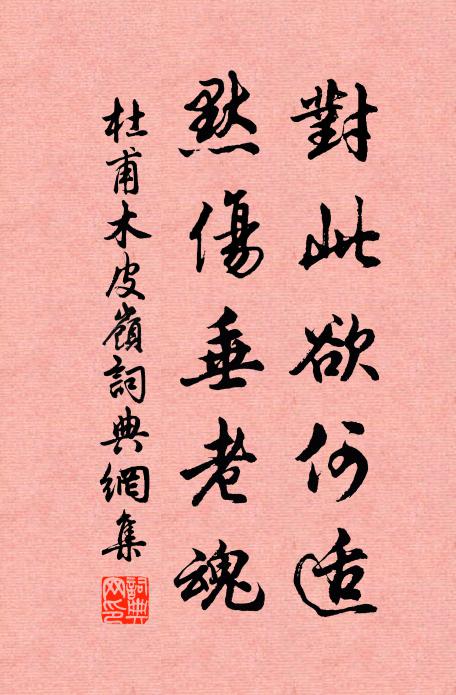 對此欲何适
默傷垂老魂
杜甫木皮嶺詞典網集
詞典网印